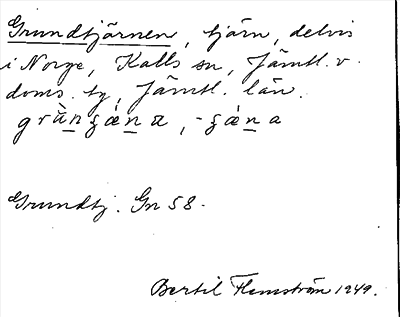 Grundtjärnen, tjärn, delvis
i Norge, Kalls sn, Jämtl. v.
doms. tg, Jämtl. län.
grùnʒǽna, -ʒǽna
Grundtj. Gn 58.
Bertil Flemström 1949.